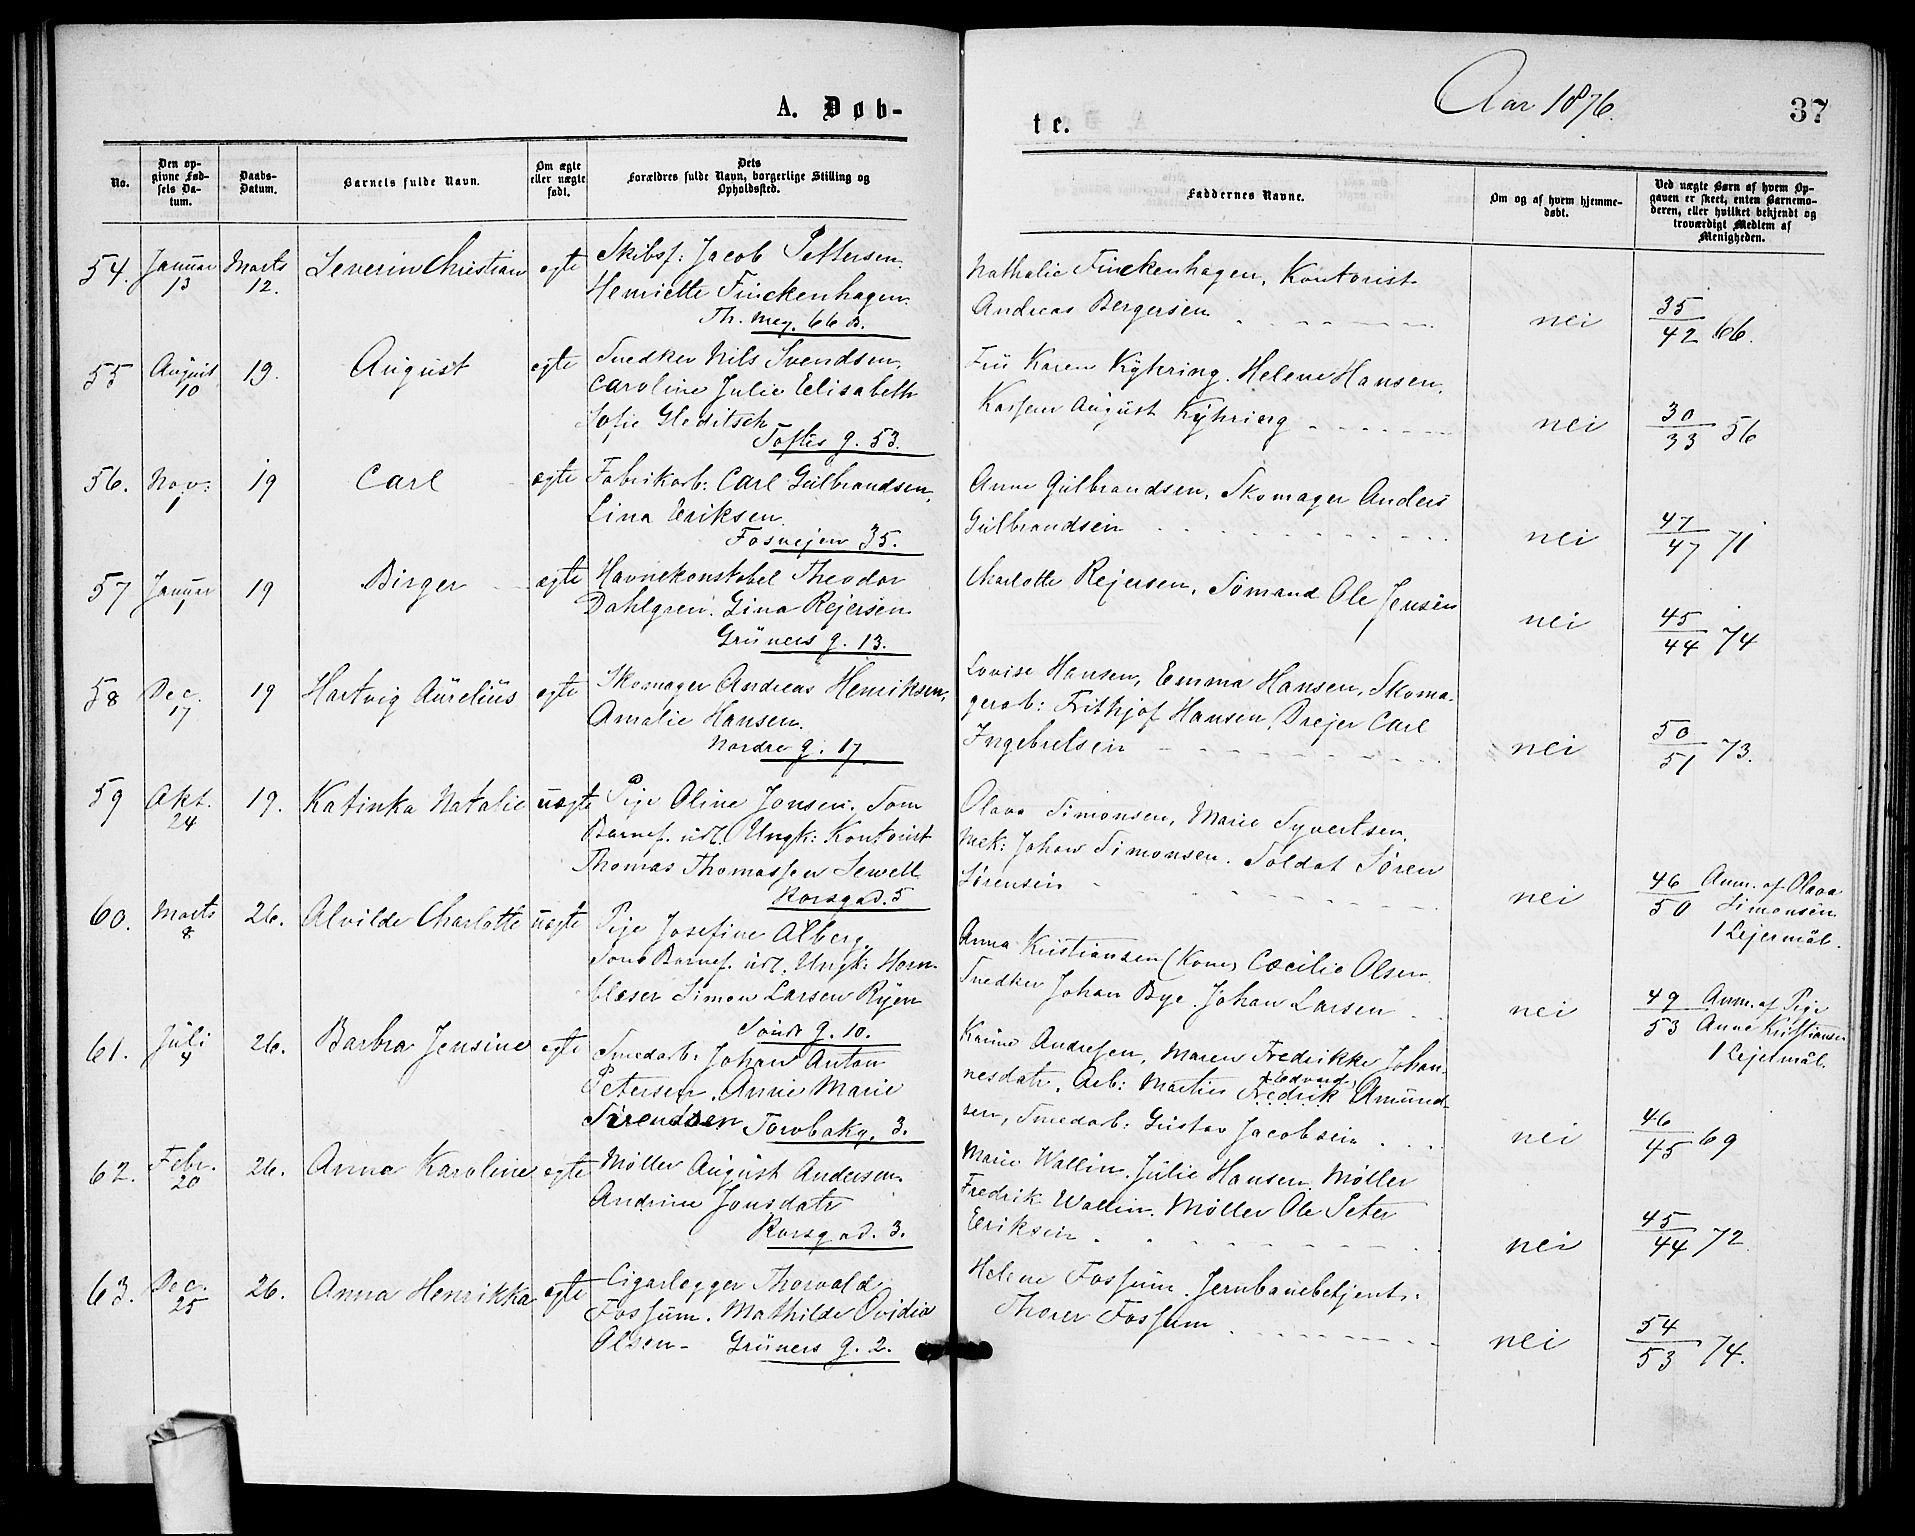 A. Døb-
No.
Den op-
givne Fød-
sels Da-
tum.
Daabs-
Datum.
Barnets fulde Navn.
Om ægte
eller uægte
født.
Dets
Forældres fulde Navn, borgerlige Stilling og
Opholdssted.
54. Januar 13 Marts 12. Severin Christian egte Skibsf: Jacob Pettersen.
Henriette Finckenhagen.
Th. Mey. 66 B.
55 August 10 19. August egte Snedker Nils Svendsen.
Caroline Julie Elisabeth
Sofie Gleditsch
Toftes g. 53.
56. Nov: 1 19 Carl ægte Fabrikarb: Carl Gulbrandsen,
Lina Eriksen
Fosvejen 35.
57 Januar 1 19 Birger ægte Havnekonstabel Theodor
Dahlgren. Gina Rejersen
Grüners g. 13.
58 Dec. 17 19 Hartvig Aurelius egte Skomager Andreas Henriksen,
Amalie Hansen.
Nordre g. 17.
59 Okt. 24 19. Katinka Natalie uægte Pige Oline Jonsen. Som
Barnef. udl. Ungk: Kontorist
Thomas Thomassen Sewell
Korsgad. 5
60. Marts 8 26. Alvilde Charlotte uægte Pige Josefine Alberg.
Som Barnef. udl. Ungk: Horn-
blæser Simon Larsen Ryen
Sondr g. 10.
61. Juli 4 26. Barbra Jensine egte Smedarb: Johan Anton
Petersen. Anne Marie
Torvbakg. 3.
62. Febr. 20 26. Anna Karoline egte Møller August Andersen.
Andrine Jonsdatr
Korsgad. 3.
63. Dec. 25 26. Anna Henrikka egte Cigarlegger Thorvald
Fossum. Mathilde Ovidia
Olsen- Grüners g. 2.
te.
Aar 1876.
37
Faddernes Navne.
Om og af hvem hjemme-
døbt.
Ved uægte Børn af hvem Op-
gaven er skeet, enten Barnemo-
deren, eller hvilket bekjendt og
troværdigt Medlem af
Menigheden.
Nathalie Finckenhagen, Kontorist
Andreas Bergersen nei 35/42 66.
Fru Karen Kyhring. Helene Hansen.
Kasserer August Kyhring nei 30/33 56
Anne Gulbrandsen, Skomager Anders
Gulbrandsen nei 47/47 71
Charlotte Rejersen, Sømand Ole Jensen
nei 45/44 74
Lovise Hansen, Emma Hansen, Skoma-
gerarb: Frithjof Hansen, Drejer Carl
Ingebretsen nei 50/51 73.
Olava Simonsen, Marie Syvertsen.
Mek: Johan Simonsen. Soldat Søren
Sørensen nei 46/50 Anm. af Olava
Simonsen
1 Lejermål.
Anna Kristiansen (Kone) Cæcilie Olsen
Snedker Johan Bye. Johan Larsen nei 49/53 Anm. af Pige
Anne Kristiansen
1 Lejermål.
Karine Andresen, Maren Fredrikke Johan-
nesdatr. Arb: Martin Fredrik Amund-
Edvard
sen, Smedarb: Gustav Jacobsen nei 46/45 69
Marie Wallin. Julie Hansen. Møller
Fredrik Wallin. Møller Ole Peter
Eriksen nei 45/44 72.
Helene Fossum. Jernbanebetjent.
Thorer Fossum nei 54/53 74.